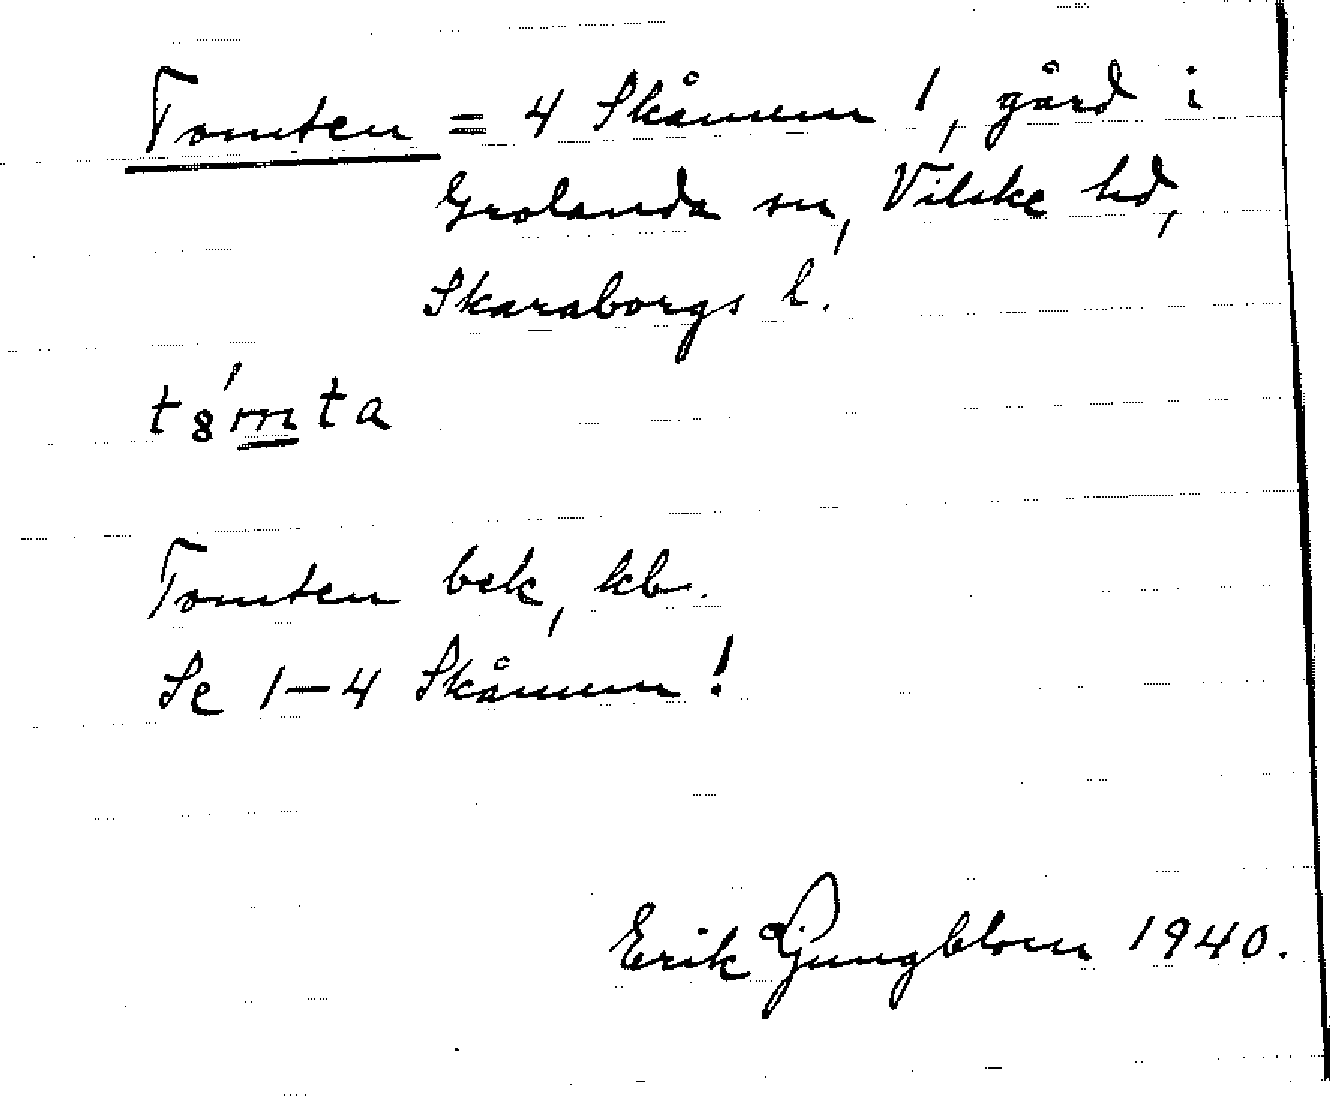 Tomten = 4 Skånum 1, gård i
Grolanda sn, Vilske hd,
Skaraborgs l.
t8́mta
Tomten bek, kb.
Se 1–4 Skånum!
Erik Ljungblom 1940.